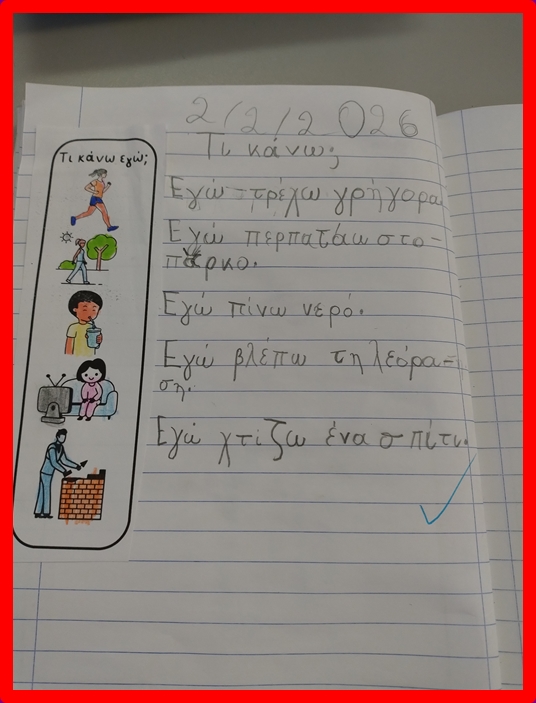 2/2/2026
Τι κάνω εγώ;
Τι κάνω;
Εγώ τρέχω γρήγορα
Εγώ περπατάω στο-
πάρκο.
Εγώ πίνω νερό.
Εγώ βλέπω τηλεόρα-
ση.
Εγώ χτίζω ένα σπίτι.